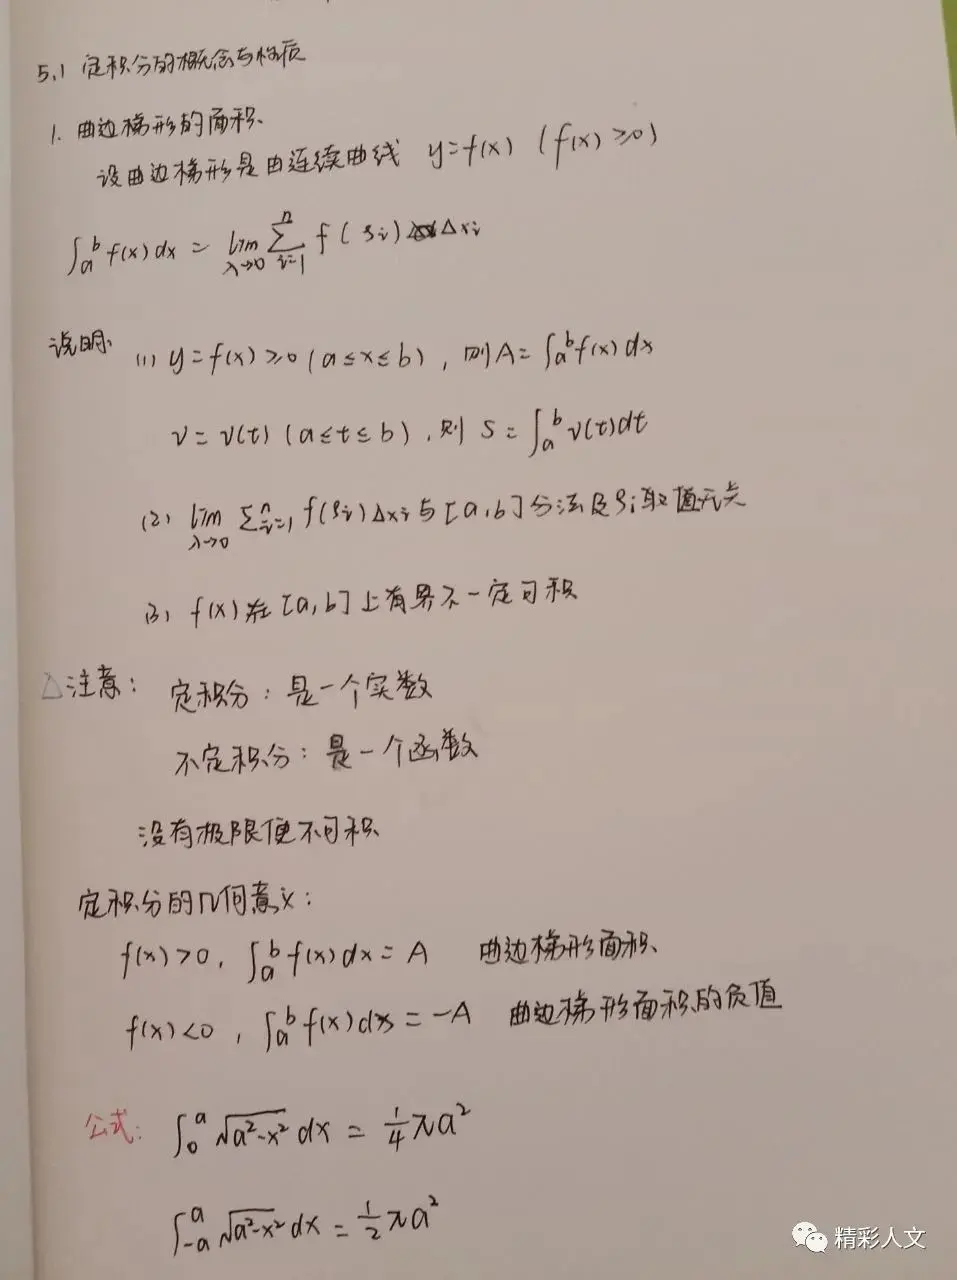 5.1 定积分的概念与性质
1. 曲边梯形的面积.
设曲边梯形是由连续曲线 y=f(x) (f(x)≥0)
∫_a^b f(x)dx = lim_{λ→0} ∑_{i=1}^n f(ξi)Δxi
说明: (1) y=f(x)≥0 (a≤x≤b), 则A=∫_a^b f(x)dx
v=v(t) (a≤t≤b), 则 S=∫_a^b v(t)dt
(2) lim_{λ→0} ∑_{i=1}^n f(ξi)Δxi与[a,b]分法及ξi取值无关
(3) f(x)在[a,b]上有界不一定可积
△注意: 定积分: 是一个实数
不定积分: 是一个函数
没有极限便不可积
定积分的几何意义:
f(x)>0, ∫_a^b f(x)dx=A 曲边梯形面积
f(x)<0, ∫_a^b f(x)dx=-A 曲边梯形面积的负值
公式: ∫_0^a √(a²-x²) dx = 1/4 πa²
∫_{-a}^a √(a²-x²) dx = 1/2 πa²
精彩人文